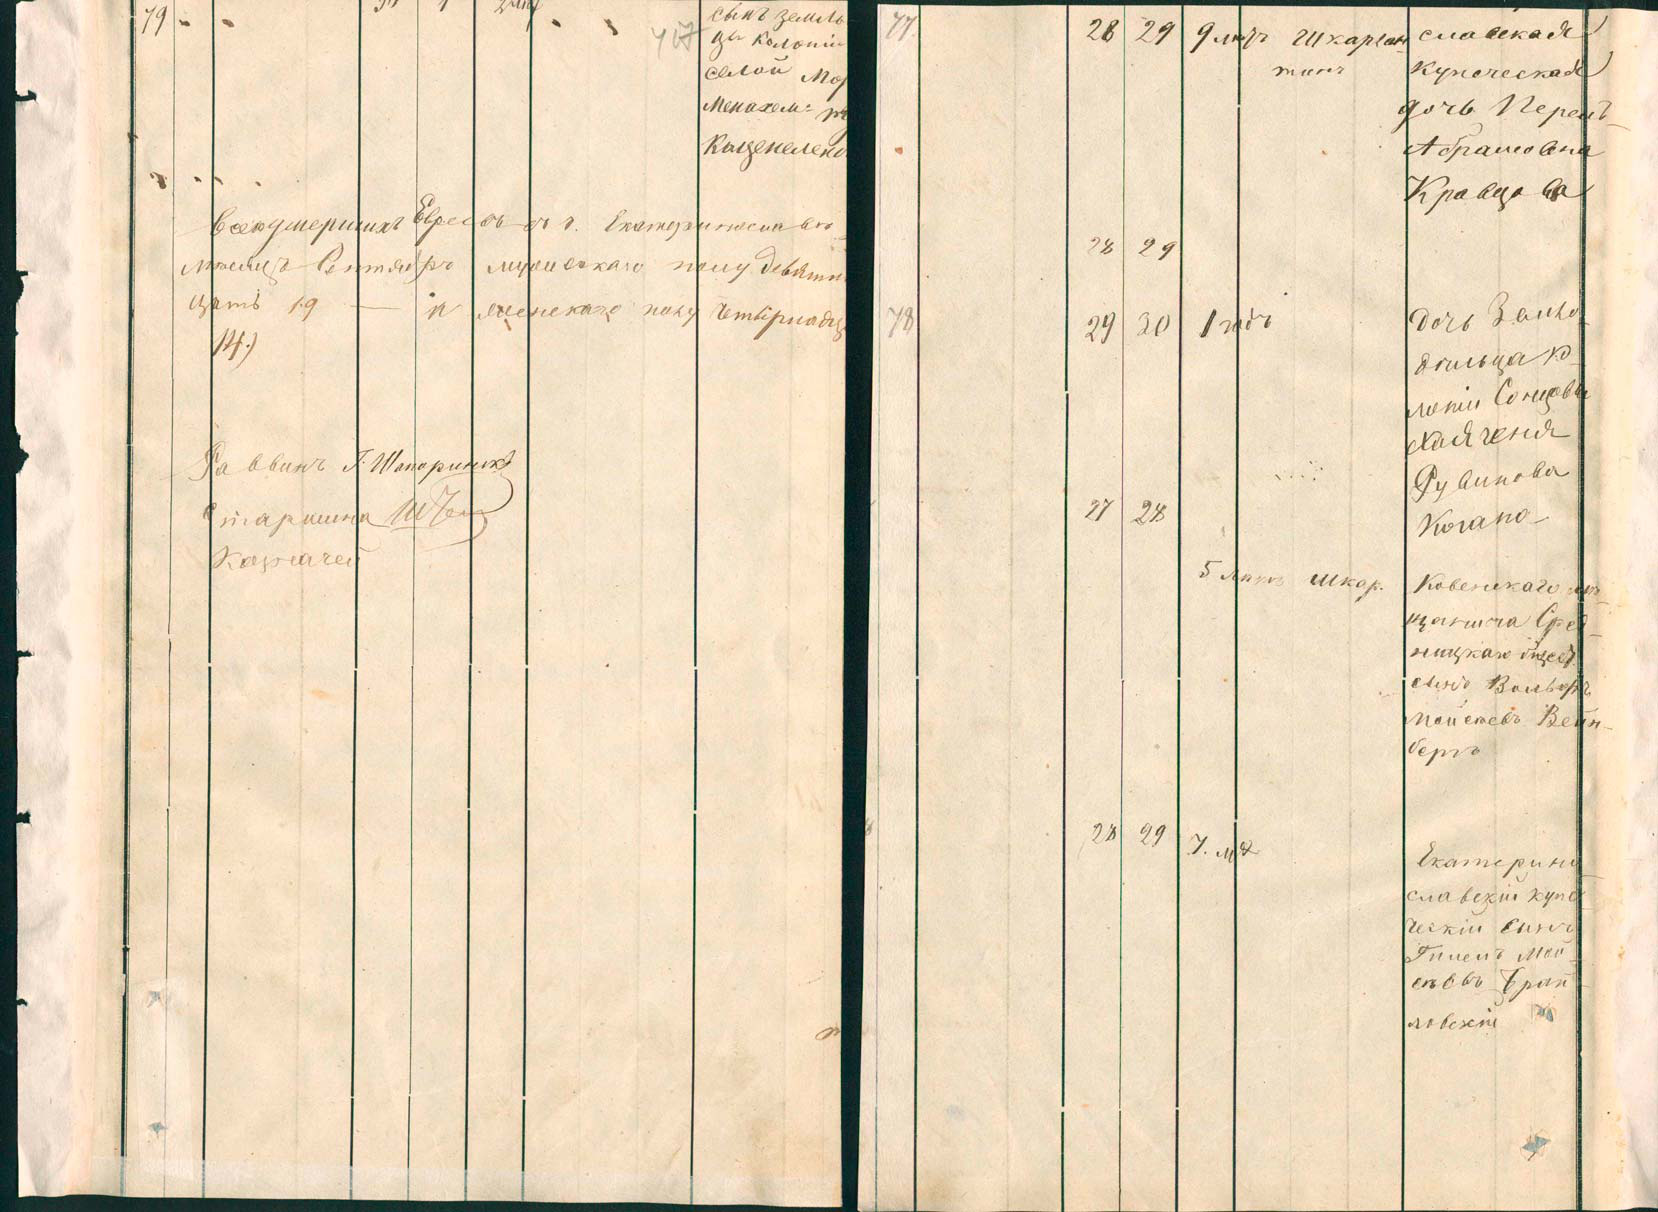 79
сынъ земле
ца колоніи
селой Мор
Менахемъ
Каценелено
417
Всехумершихъ Евреевъ въ г. Екатеринославе
месяцъ Сентябръ мужскаго полу девятна
цать 19 — и женскаго полу четырнадц
14.)
Раввинъ Г. Шапоринскій
Старшина
Казначей
77. 28 29 9 мъ Шкарлан славская
тинъ купеческая
дочь Перель
Абрамовна
Кравцова
28 29
78 29 30 1 годъ дочь Земле
дельца ко
лоніи Сонцовы
Хая Геня
Рувинова
27 28 Когано
5 летъ шкар. Ковенскаго ме
щанина Сред
ницкаго общес
сынъ Вольфъ
Мойсеевъ Вейн
бергъ
28 29 7. мя
Екатерино
славскій купе
ческій сынъ
Гилель Мой
сеевъ Браи
ловскій